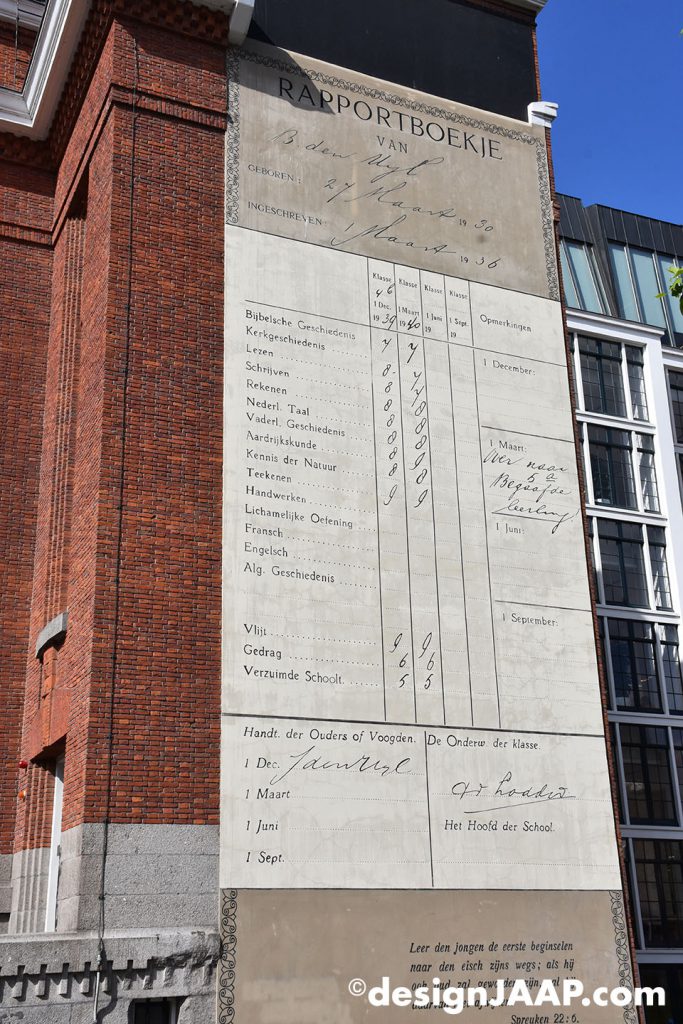 RAPPORTBOEKJE
VAN
B. den Uyl
GEBOREN: 27 Maart 1930
INGESCHREVEN: 1 Maart 1936
Klasse Klasse Klasse Klasse
1 Dec. 1 Maart 1 Juni 1 Sept. Opmerkingen
1939 1940 19 19
Bijbelsche Geschiedenis 7 7
Kerkgeschiedenis
Lezen 8 7
Schrijven 8 7
Rekenen 8 8
Nederl. Taal 8 8
Vaderl. Geschiedenis 8 8
Aardrijkskunde 8 9
Kennis der Natuur 8 8
Teekenen
Handwerken 9 9
Lichamelijke Oefening
Fransch
Engelsch
Alg. Geschiedenis
Vlijt 9 9
Gedrag 6 6
Verzuimde Schoolt. 5 5
1 December:
1 Maart:
Over naar
5 a
Begaafde
leerling
1 Juni:
1 September:
Handt. der Ouders of Voogden.
1 Dec. J den Uyl
1 Maart
1 Juni
1 Sept.
De Onderw der klasse.
Het Hoofd der School.
Leer den jongen de eerste beginselen
naar den eisch zijns wegs; als hij
Spreuken 22:6.
©designJAAP.com